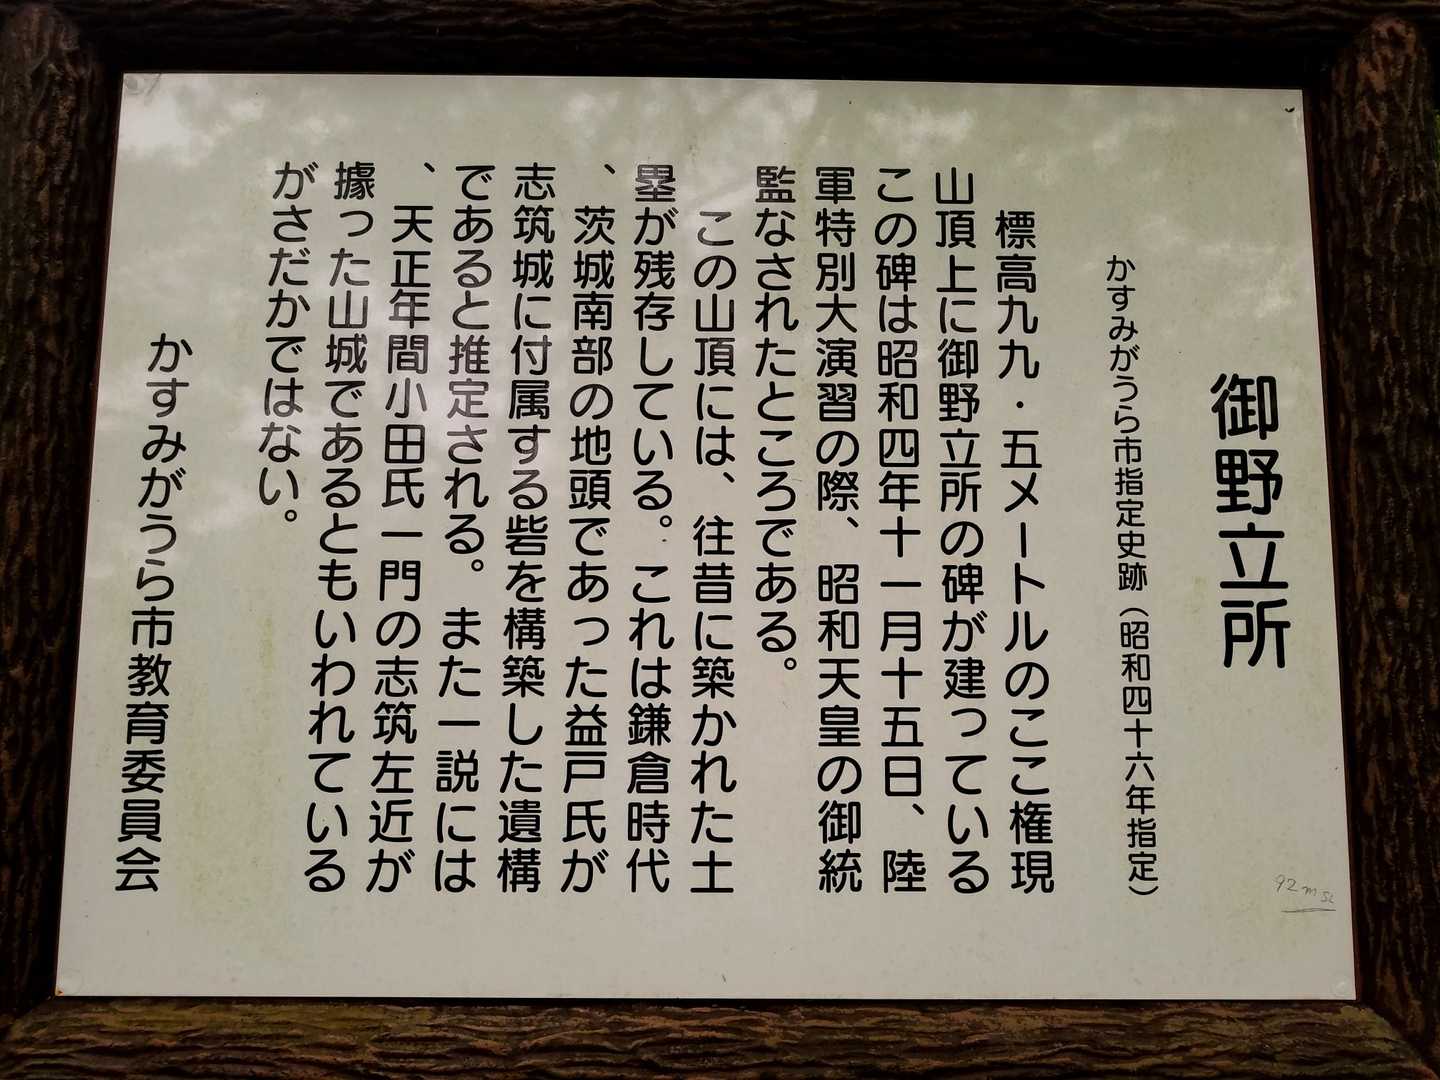 御野立所
かすみがうら市指定史跡（昭和四十六年指定）
標高九九・五メートルのここ権現
山頂上に御野立所の碑が建っている
この碑は昭和四年十一月十五日、陸
軍特別大演習の際、昭和天皇の御統
監なされたところである。
この山頂には、往昔に築かれた土
塁が残存している。これは鎌倉時代
、茨城南部の地頭であった益戸氏が
志筑城に付属する砦を構築した遺構
であると推定される。また一説には
、天正年間小田氏一門の志筑左近が
據った山城であるともいわれている
がさだかではない。
かすみがうら市教育委員会